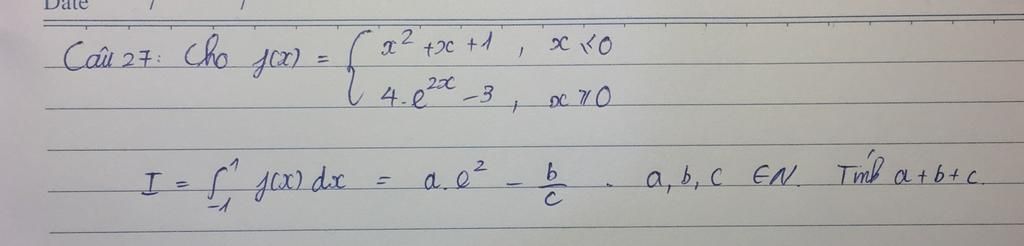 Date / /
Câu 27: Cho f(x) = { x² + x + 1 , x ≤ 0
4.e²ˣ - 3 , x ≥ 0
I = ∫₋₁¹ f(x) dx = a.e² - b/c . a, b, c ∈ N. Tính a + b + c.